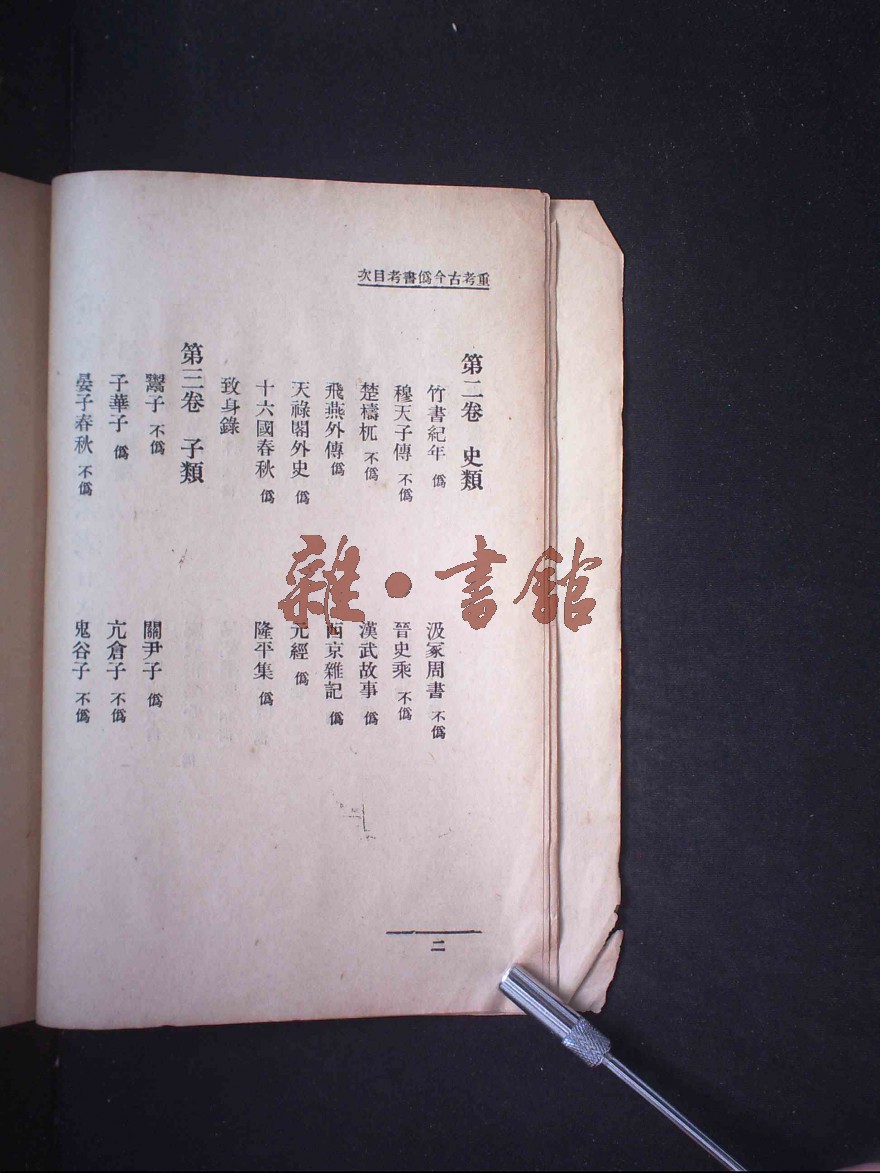 重考古今僞書考目次
第二卷 史類
竹書紀年 僞 汲冢周書 不僞
穆天子傳 不僞 晉史乘 不僞
楚檮杌 不僞 漢武故事 僞
飛燕外傳 僞 西京雜記 僞
天祿閣外史 僞 元經 僞
十六國春秋 僞 隆平集 僞
致身錄
第三卷 子類
鬻子 不僞 關尹子 僞
子華子 僞 亢倉子 不僞
晏子春秋 不僞 鬼谷子 不僞
二
雜·書館